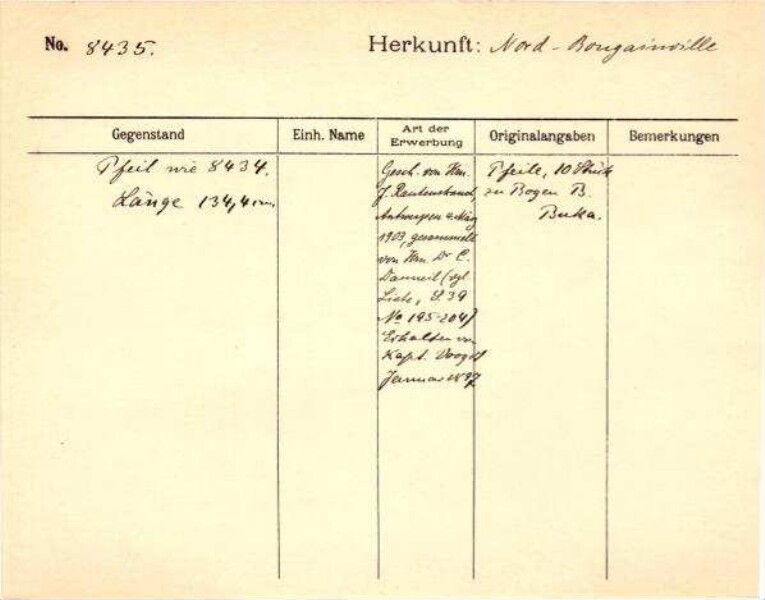 No. 8435.
Herkunft: Nord-Bougainville
Gegenstand
Einh. Name
Art der
Erwerbung
Originalangaben
Bemerkungen
Pfeil wie 8434.
Länge 134,4 cm.
Gesch. von Hrn.
J. Rautenstrauch,
Antwerpen 4. März
1903, gesammelt
von Hrn. Dr C.
Danneil (vgl.
Liste, S. 39
No 195-204)
Erhalten von
Kapt. Voogdt
Januar 1897
Pfeile, 10 Stück
zu Bogen B.
Buka.